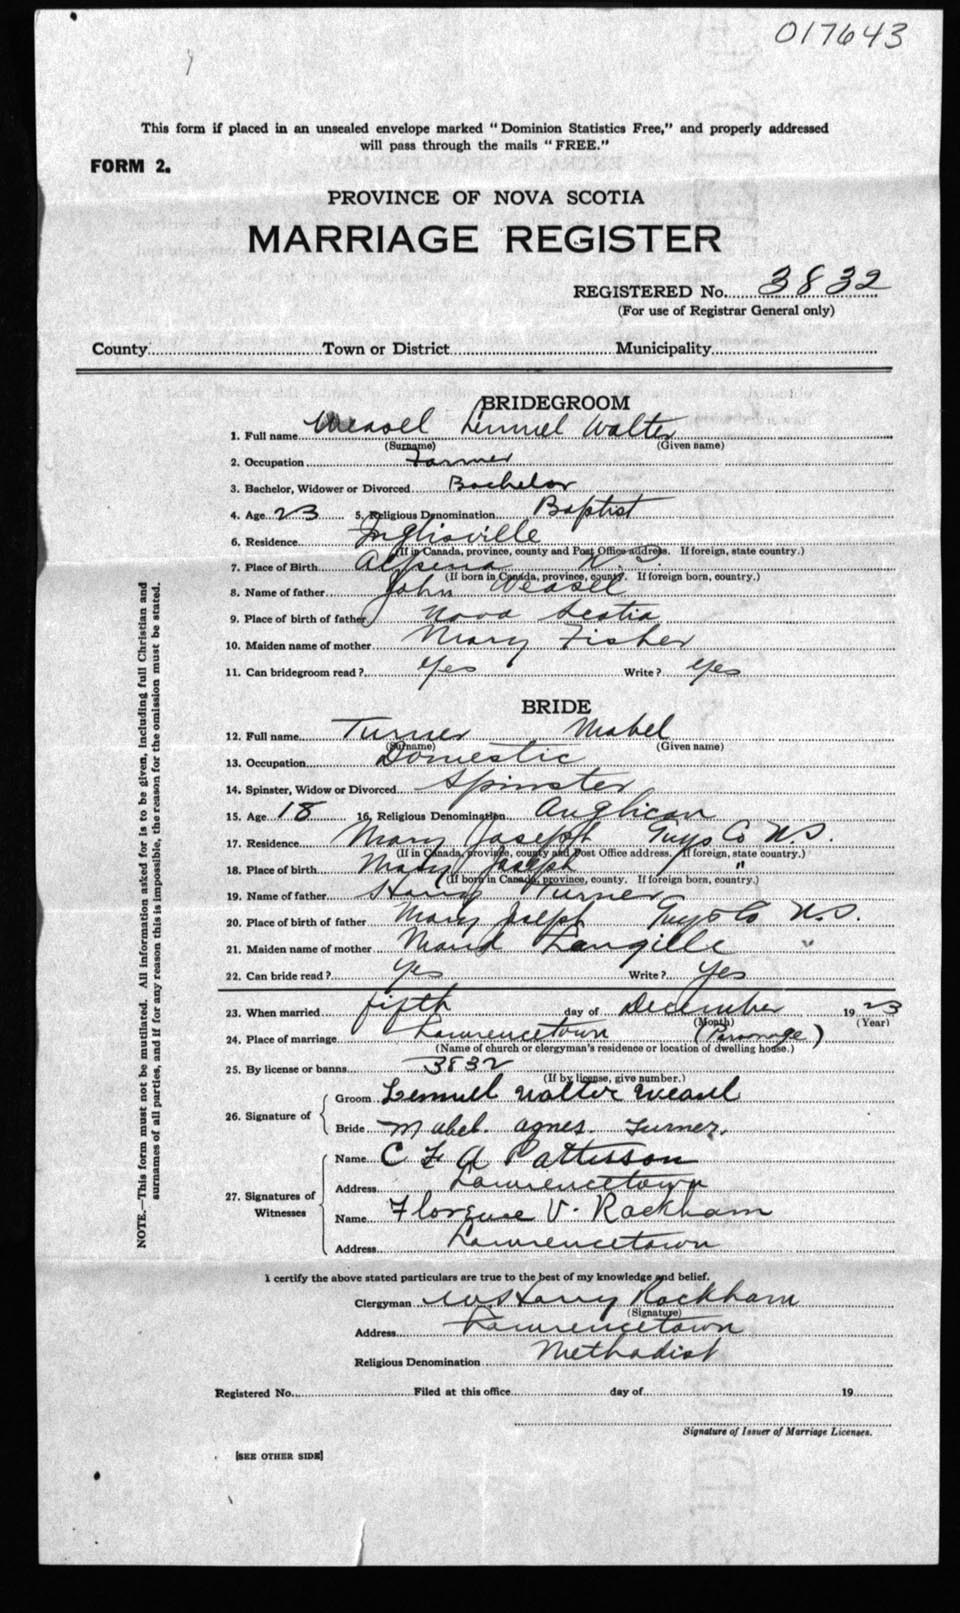 017643
This form if placed in an unsealed envelope marked "Dominion Statistics Free," and properly addressed
will pass through the mails "FREE."
FORM 2.
PROVINCE OF NOVA SCOTIA
MARRIAGE REGISTER
REGISTERED No. 3832
(For use of Registrar General only)
County Town or District Municipality
BRIDEGROOM
1. Full name Weasel Lemuel Walter
(Surname) (Given name)
2. Occupation Farmer
3. Bachelor, Widower or Divorced Bachelor
4. Age 23 5. Religious Denomination Baptist
6. Residence Inglisville
(If in Canada, province, county and Post Office address. If foreign, state country.)
7. Place of Birth Alpena N.S.
(If born in Canada, province, county. If foreign born, country.)
8. Name of father John Weasel
9. Place of birth of father Nova Scotia
10. Maiden name of mother Mary Fisher
11. Can bridegroom read? Yes Write? Yes
BRIDE
12. Full name Turner Mabel
(Surname) (Given name)
13. Occupation Domestic
14. Spinster, Widow or Divorced Spinster
15. Age 18 16. Religious Denomination Anglican
17. Residence Mary Joseph Guys Co N.S.
(If in Canada, province, county and Post Office address. If foreign, state country.)
18. Place of birth Mary Joseph "
(If born in Canada, province, county. If foreign born, country.)
19. Name of father Turner
20. Place of birth of father Mary Joseph Guys Co N.S.
21. Maiden name of mother Maud Langille "
22. Can bride read? Yes Write? Yes
23. When married fifth day of December 1923
(Month) (Year)
24. Place of marriage Lawrencetown (Parsonage)
(Name of church or clergyman's residence or location of dwelling house.)
25. By license or banns 3832
(If by license, give number.)
26. Signature of
Groom Lemuel Walter Weasel
Bride Mabel agnes. Turner.
27. Signatures of Witnesses
Name C F A Pattisson
Address Lawrencetown
Name Florence V. Rackham
Address Lawrencetown
I certify the above stated particulars are true to the best of my knowledge and belief.
Clergyman Harry Rackham
(Signature)
Address Lawrencetown
Religious Denomination Methodist
Registered No. Filed at this office day of 19
Signature of Issuer of Marriage Licenses.
[SEE OTHER SIDE]
NOTE.—This form must not be mutilated. All information asked for is to be given, including full Christian and
surnames of all parties, and if for any reason this is impossible, the reason for the omission must be stated.